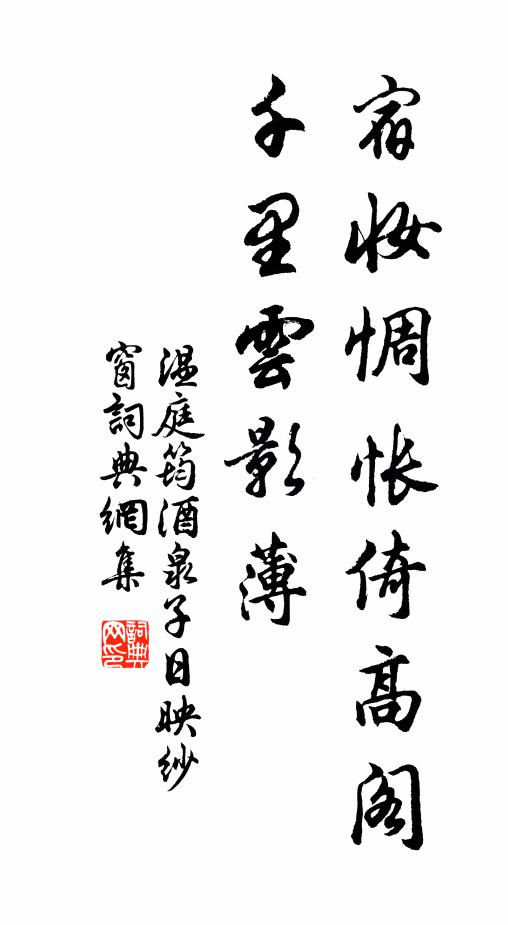 宿妝惆悵倚高阁
千里雲影薄
温庭筠酒泉子日映紗
窗詞典網集
詞典
网印